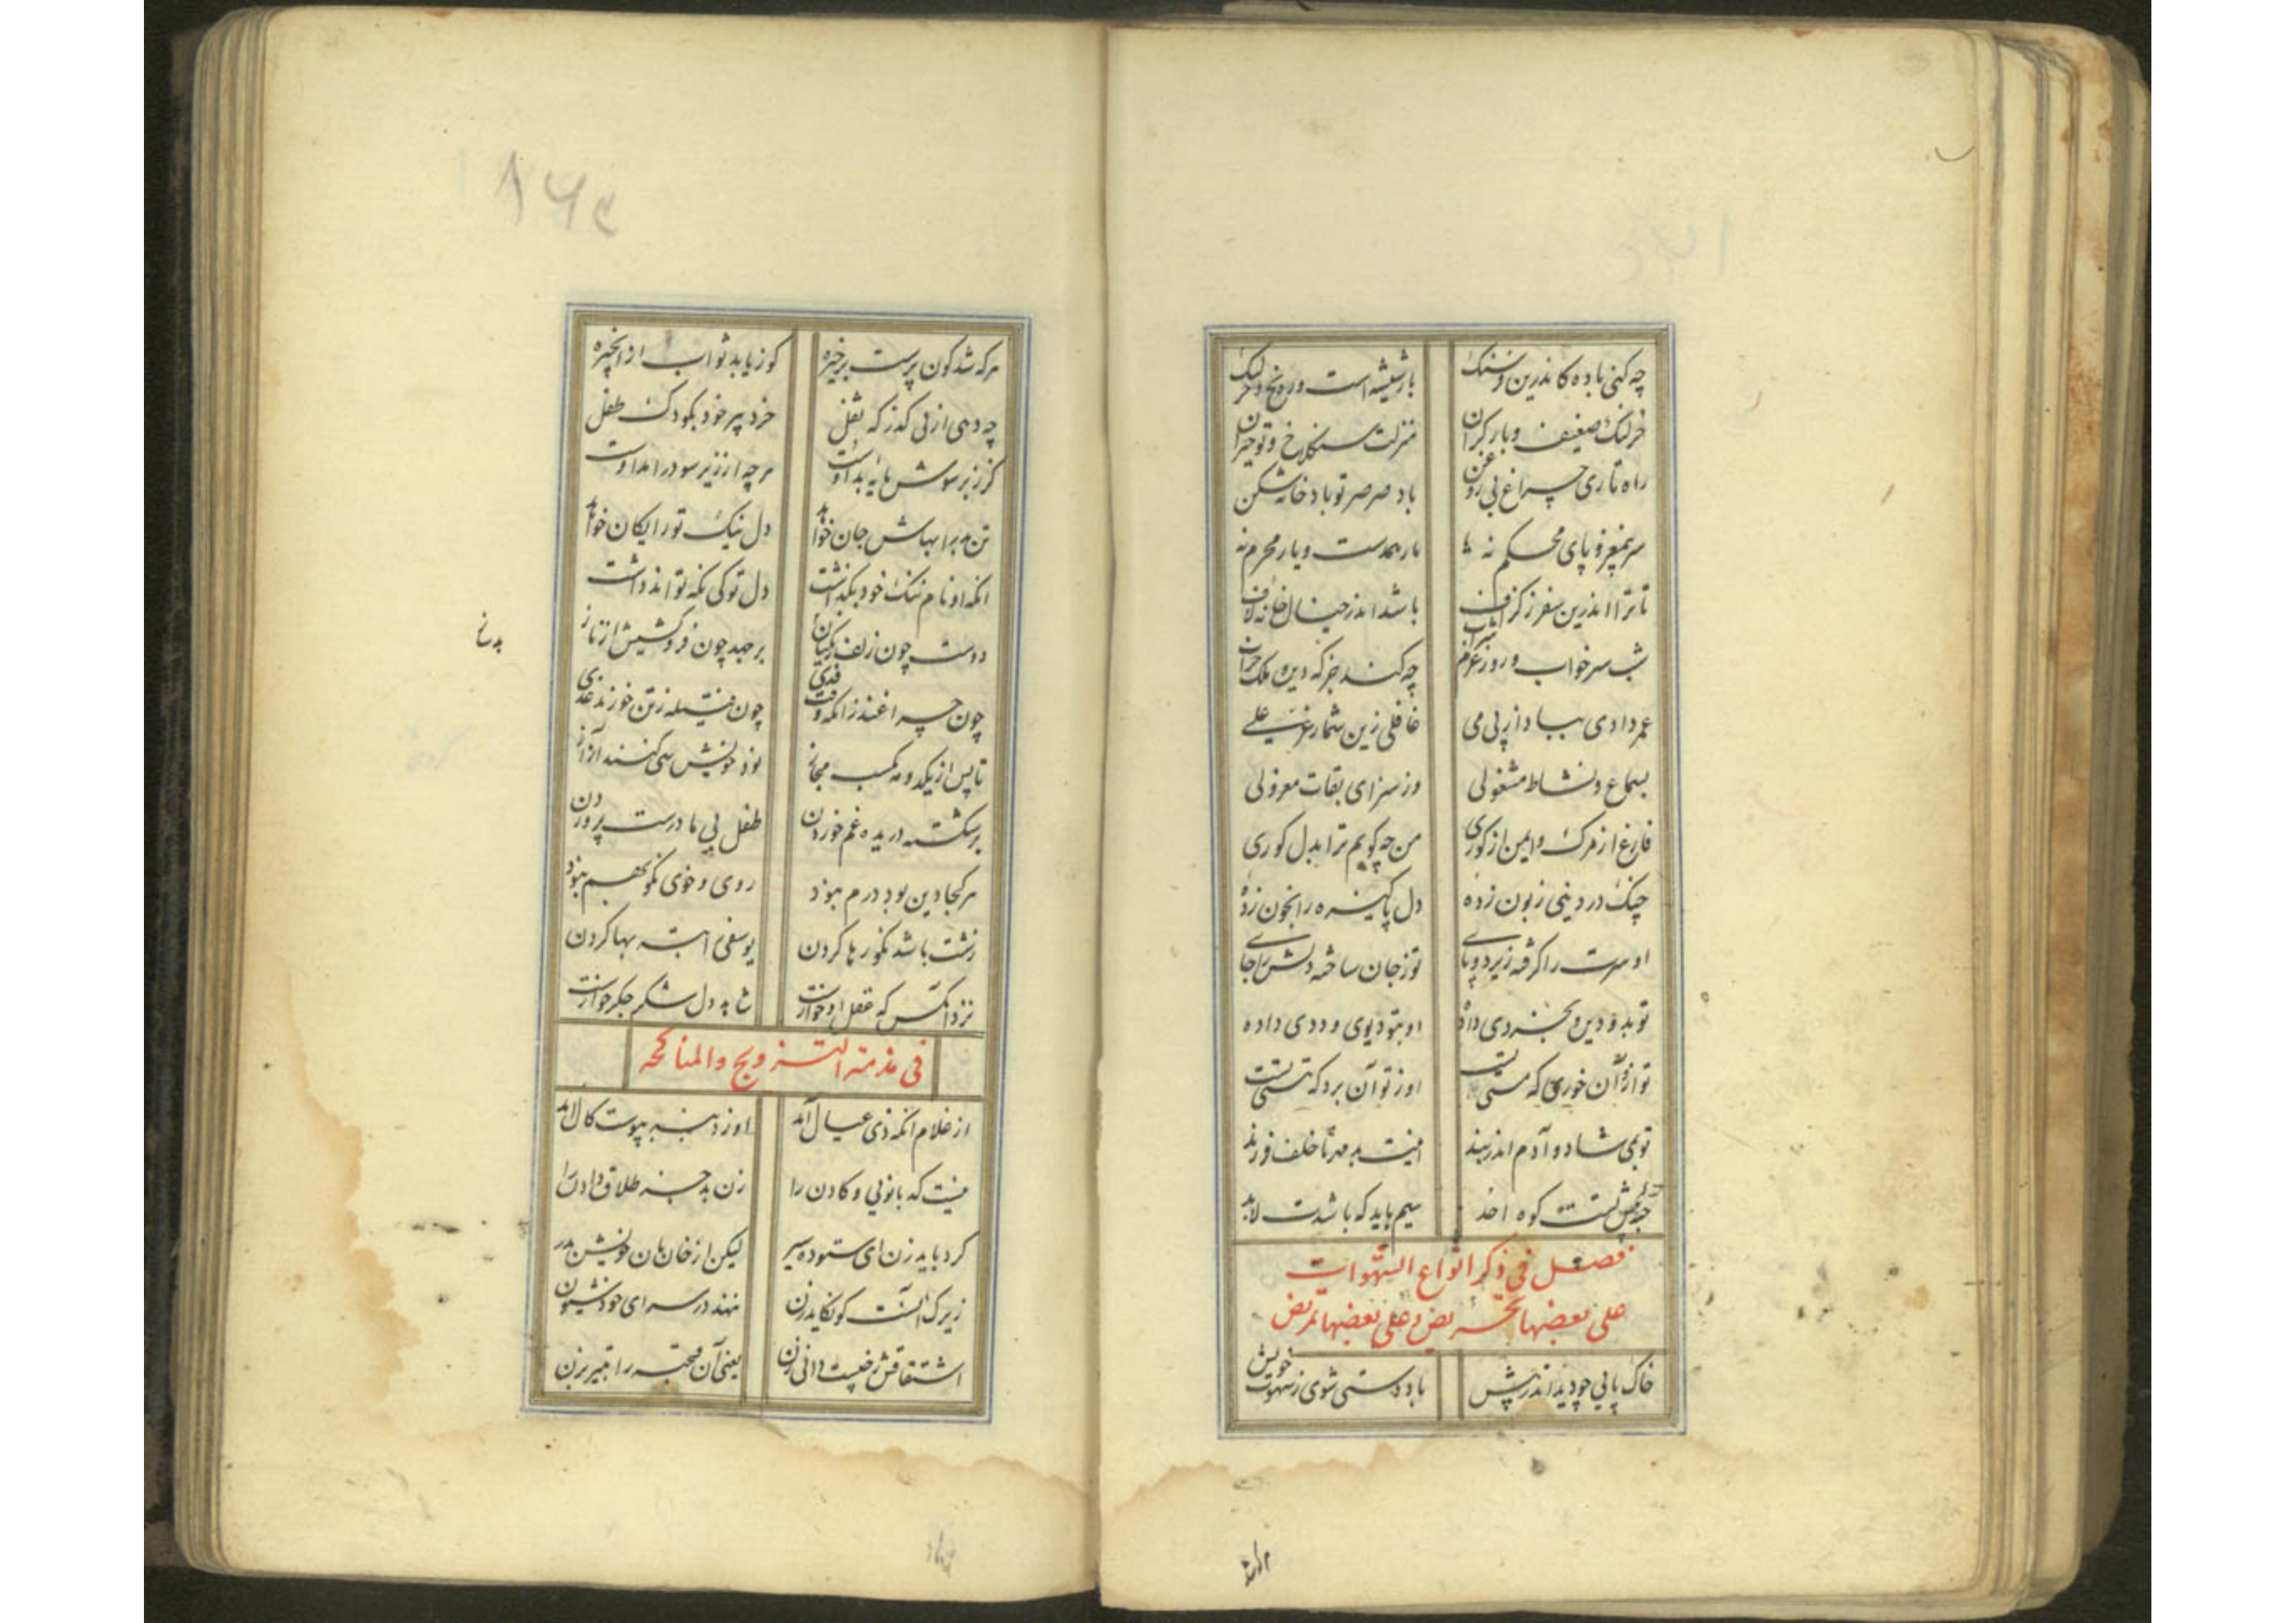 چه کنی باده کاندرین فرسنگ بار شیشه است و ره یخ و خر لنگ
خر لنگ ضعیف و بار گران منزلت سنگلاخ و تو حیران
راه تاری چراغ بی روغن باد صرصر تو بادخانه شکن
سر بی مغز و پای محکم نه یار همدست و یار محرم نه
تا ترا اندرین سفر ز گزاف باشد اندر خیال خانه لاف
شب سر خواب و روز عزم شراب چه کند جز که دین و ملک خراب
عمر دادی بباد از پی می غافلی زین شمار عز علی
بسماع و نشاط مشغولی وز سرای بقات معزولی
فارغ از مرگ و ایمن از گوری من چه گویم ترا بدل کوری
چنگ در دینی زبون زده دل پاکیزه را بخون زده
او سرت را گرفته زیر دو پای تو ز جان ساخته دلش را جای
تو بدو دین و بخردی داده او بتو دیوی و ددی داده
تو ازو آن خوری که مستی تست او ز تو آن برد که هستی تست
تو بمی شاد و آدم اندر بند اینت بد مهر ناخلف فرزند
کوه سیم باید که باشدت لابد
فصل فی ذکر انواع الشهوات
علی بعضها تحریض و علی بعضها تمریض
خاک پایی چو دید اندر پیش باد دستی شوی ز شهوت خویش
م ا م
۱۶۴
هرکه شد کون پرست بر خیره کور یابد ثواب از انجیره
چه دهی از پی گذر که ثفل خرد پیر خود بکودک طفل
کز زبر سوش مایه بد اوست هرچه از زیر سو درآمد اوست
تن مبر را بهاش جان خواهد دل نیک تو رایگان خواهد
آنکه او نام ننگ خود بگذاشت دل تو کی نگه تواند داشت
دوست چون زلف زنگیان بر جهد چون فروکشیش از ناز
چون چراغند زانکه وقت چون فتیله ز تن خورند غذی
تا پس از یکد و مه کسب مجاز نزد خویش سی کنند آواز
بر شکسته دریده غم خوردن طفل بی مادرست پروردن
هر کجا دین بود درم نبود روی و خوی نکو بهم نبود
زشت باشد نکو رها کردن یوسفی را بته بها کردن
نزد آنکس که عقل او خوارست شاهد دل شکر جگر خوارست
فی مذمة التزویج والمناکحه
از غلام آنکه ذی عیال آمد او ز دنبه بپوست کال آمد
نیست که بانویی و کادن را زن بد جز طلاق دادن را
کرد باید زن ای ستوده سیر لیکن از خان مان خویش بدر
زیرک آنست کو نگاید زن ننهد در سرای خود شیون
اشتقاقش ز چیست دانی زن یعنی آن قحبه را بتیر بزن